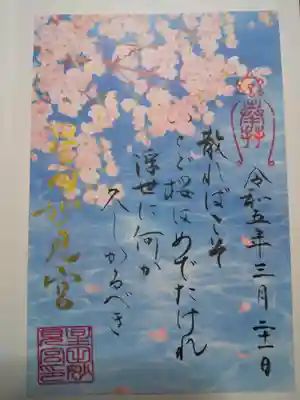 令和五年三月二十一日
散ればこそ
いとど桜はめでたけれ
浮世に何か
久しかるべき
星田妙見宮